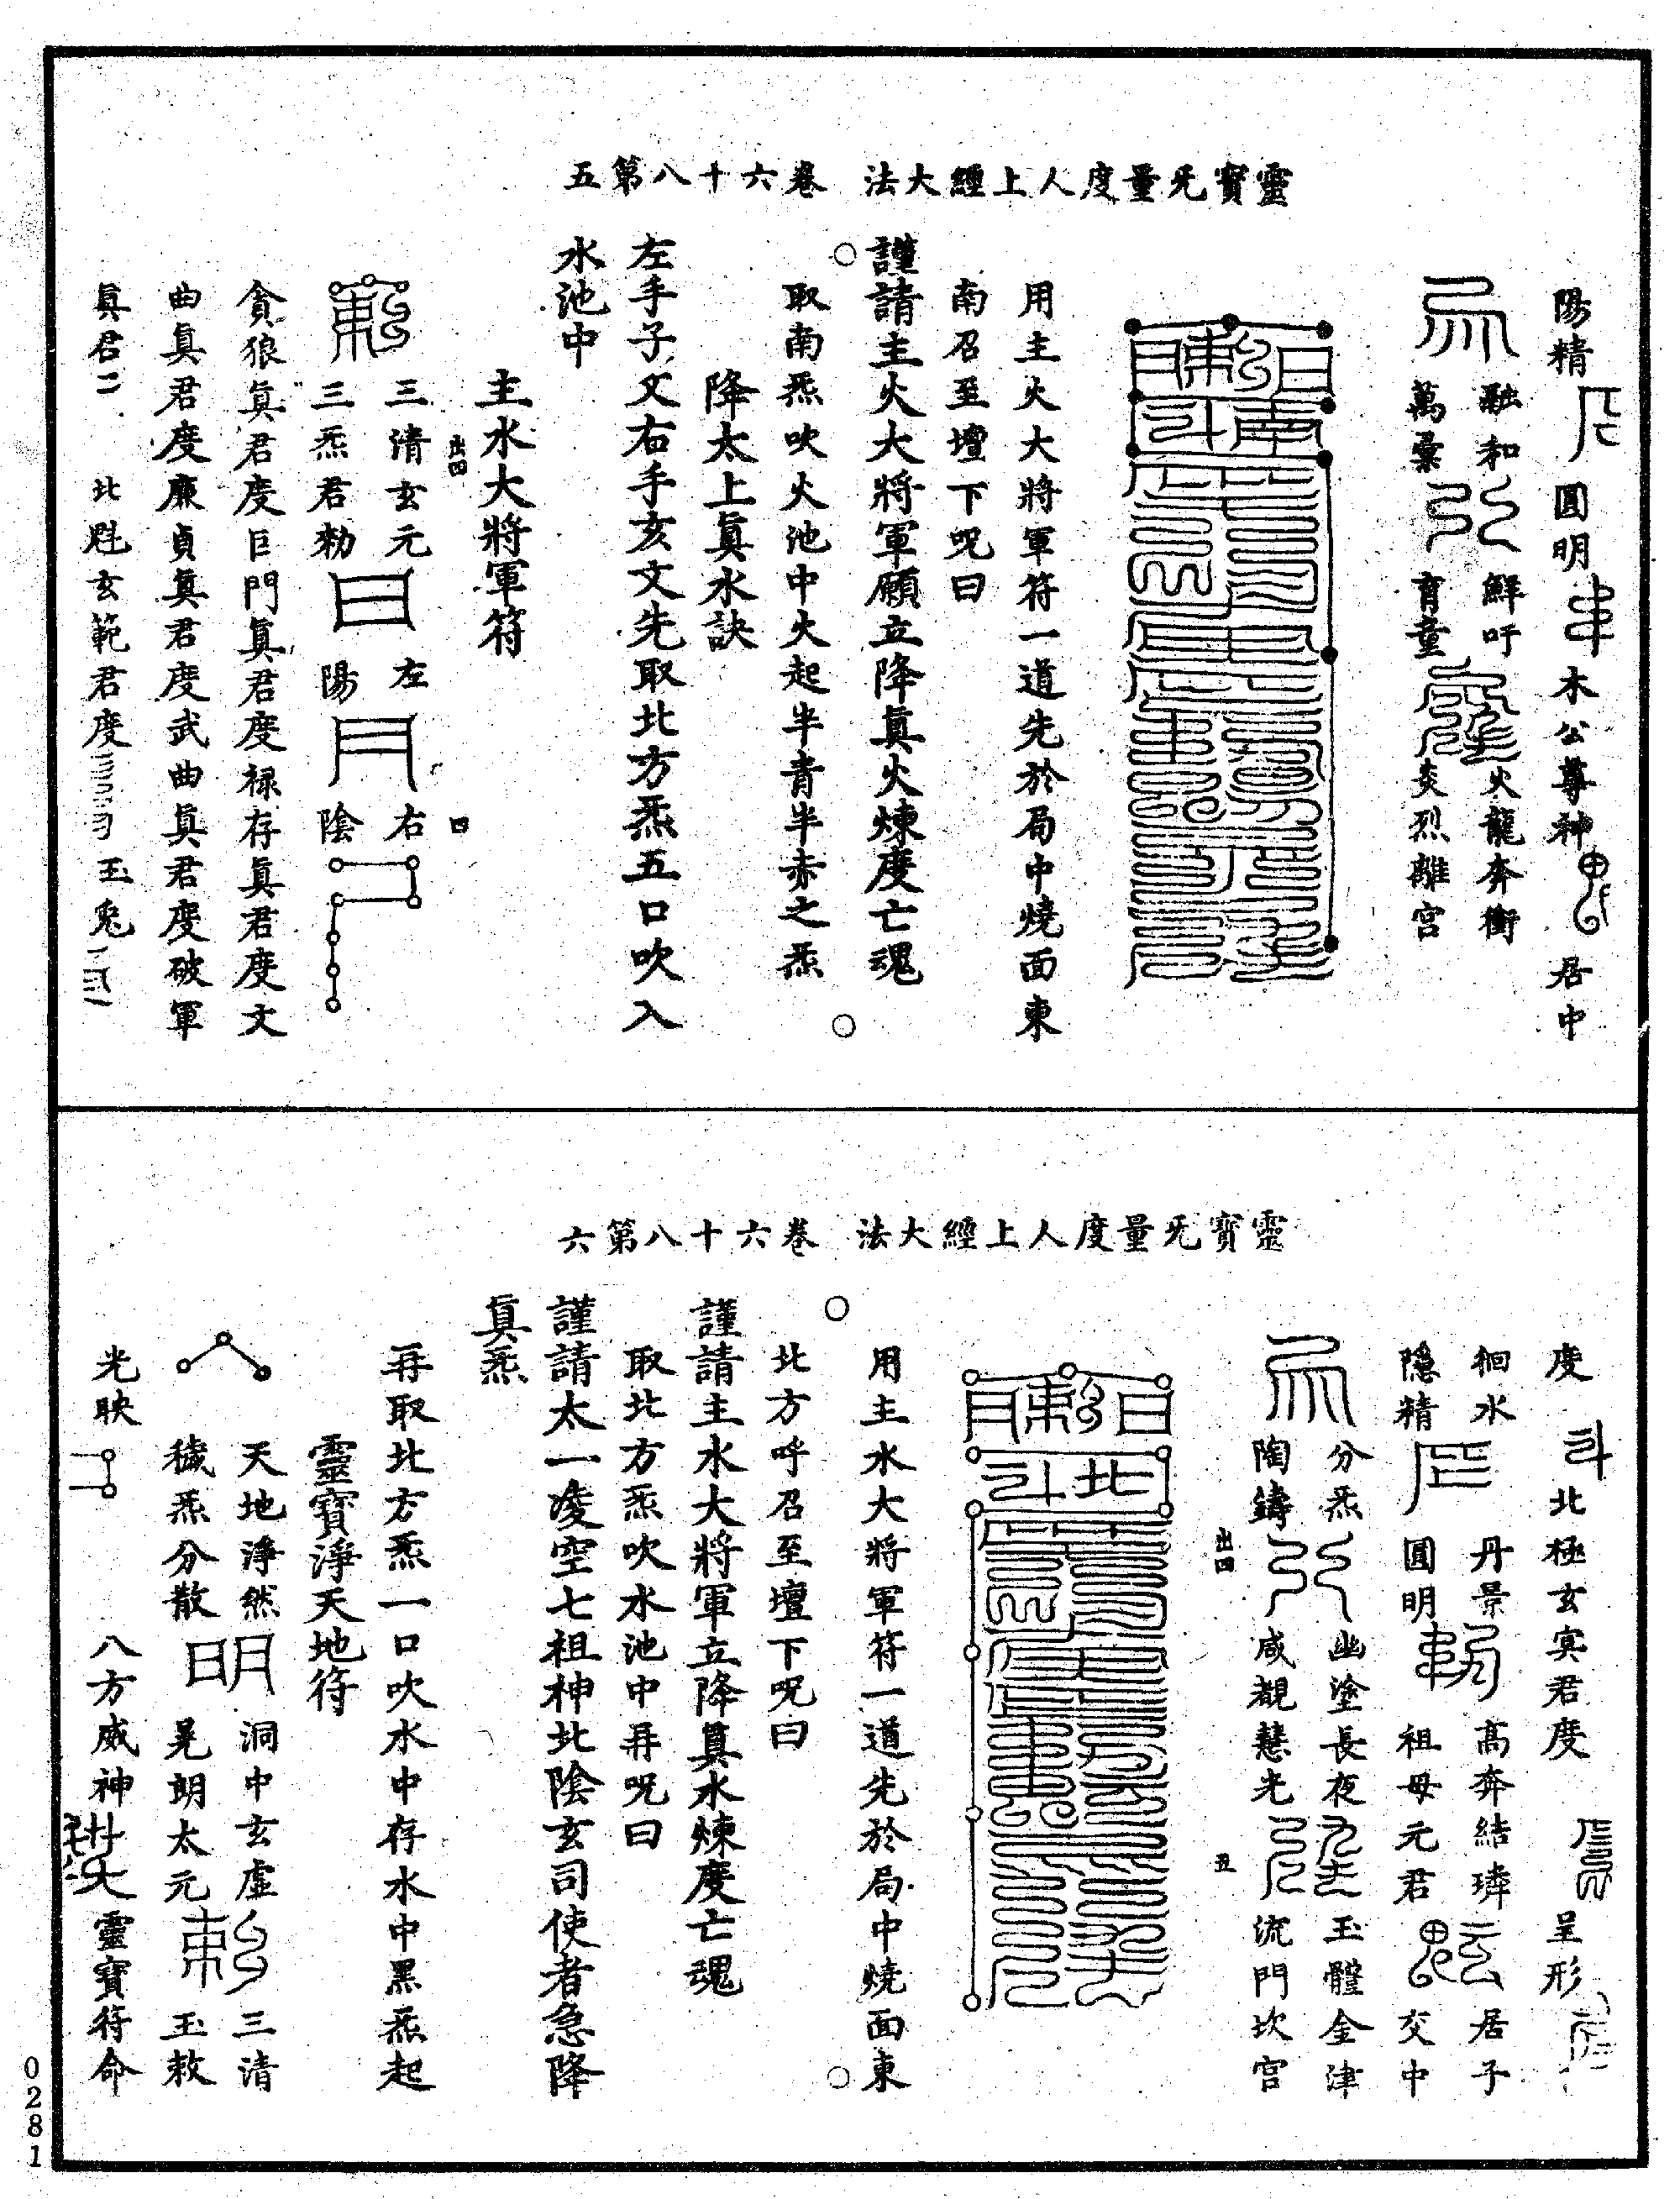 靈寶旡量度人上經大法　卷六十八第五
陽精　圓明　木公尊神　居中
融和　鮮吁　火龍奔衝
萬彙　育童　炎烈離宮
用主火大將軍符一道先於局中燒面東
南召至壇下呪曰
謹請主火大將軍願立降眞火煉度亡魂
取南炁吹火池中火起半青半赤之炁
降太上眞水訣
左手子文右手亥文先取北方炁五口吹入
水池中
主水大將軍符
出四　四
三清玄元　左　右
三炁君勑　陽　陰
貪狼眞君度巨門眞君度祿存眞君度文
曲眞君度廉貞眞君度武曲眞君度破軍
眞君二　北魁玄範君度　玉兎
靈寶旡量度人上經大法　卷六十八第六
度　北極玄冥君度　呈形
徊水　丹景　高奔結璘　居子
隱精　圓明　祖母元君　交中
分炁　幽塗長夜　玉體金津
陶鑄　咸覩慧光　流門坎宮
出四　丑
用主水大將軍符一道先於局中燒面東
北方呼召至壇下呪曰
謹請主水大將軍立降眞水煉度亡魂
取北方炁吹水池中再呪曰
謹請太一凌空七祖神北陰玄司使者急降
眞炁
再取北方炁一口吹水中存水中黑炁起
靈寶淨天地符
天地淨然　洞中玄虛　三清
穢炁分散　晃朗太元　玉敕
光映　八方威神　靈寶符命
0281